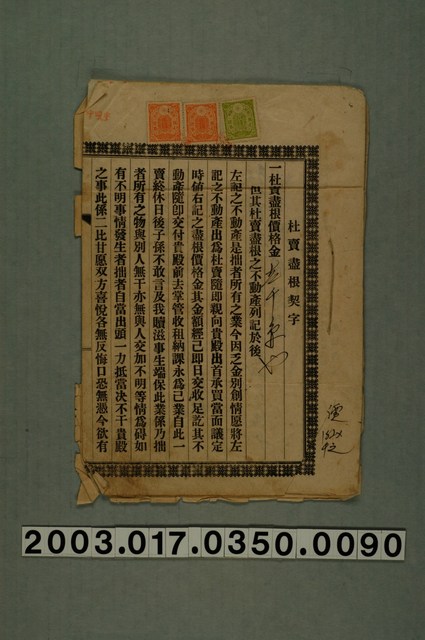 杜賣盡根契字
一杜賣盡根價格金
但其杜賣盡根之不動產列記於後
左記之不動產是拙者所有之業今因乏金別創情愿將左
記之不動產出為杜賣隨即親向貴殿出首承買當面議定
時值右記之盡根價格金其金額經已即日交收足訖其不
動產隨卽交付貴殿前去掌管收租納課永為己業自此一
賣終休日後子孫不敢言及我贖滋事生端保此業係乃拙
者所有之物與別人無干亦無與人交加不明等情為碍如
有不明事情發生者拙者自當出頭一力抵當决不干貴殿
之事此係二比甘愿双方喜悅各無反悔口恐無憑今欲有
2003.017.0350.0090